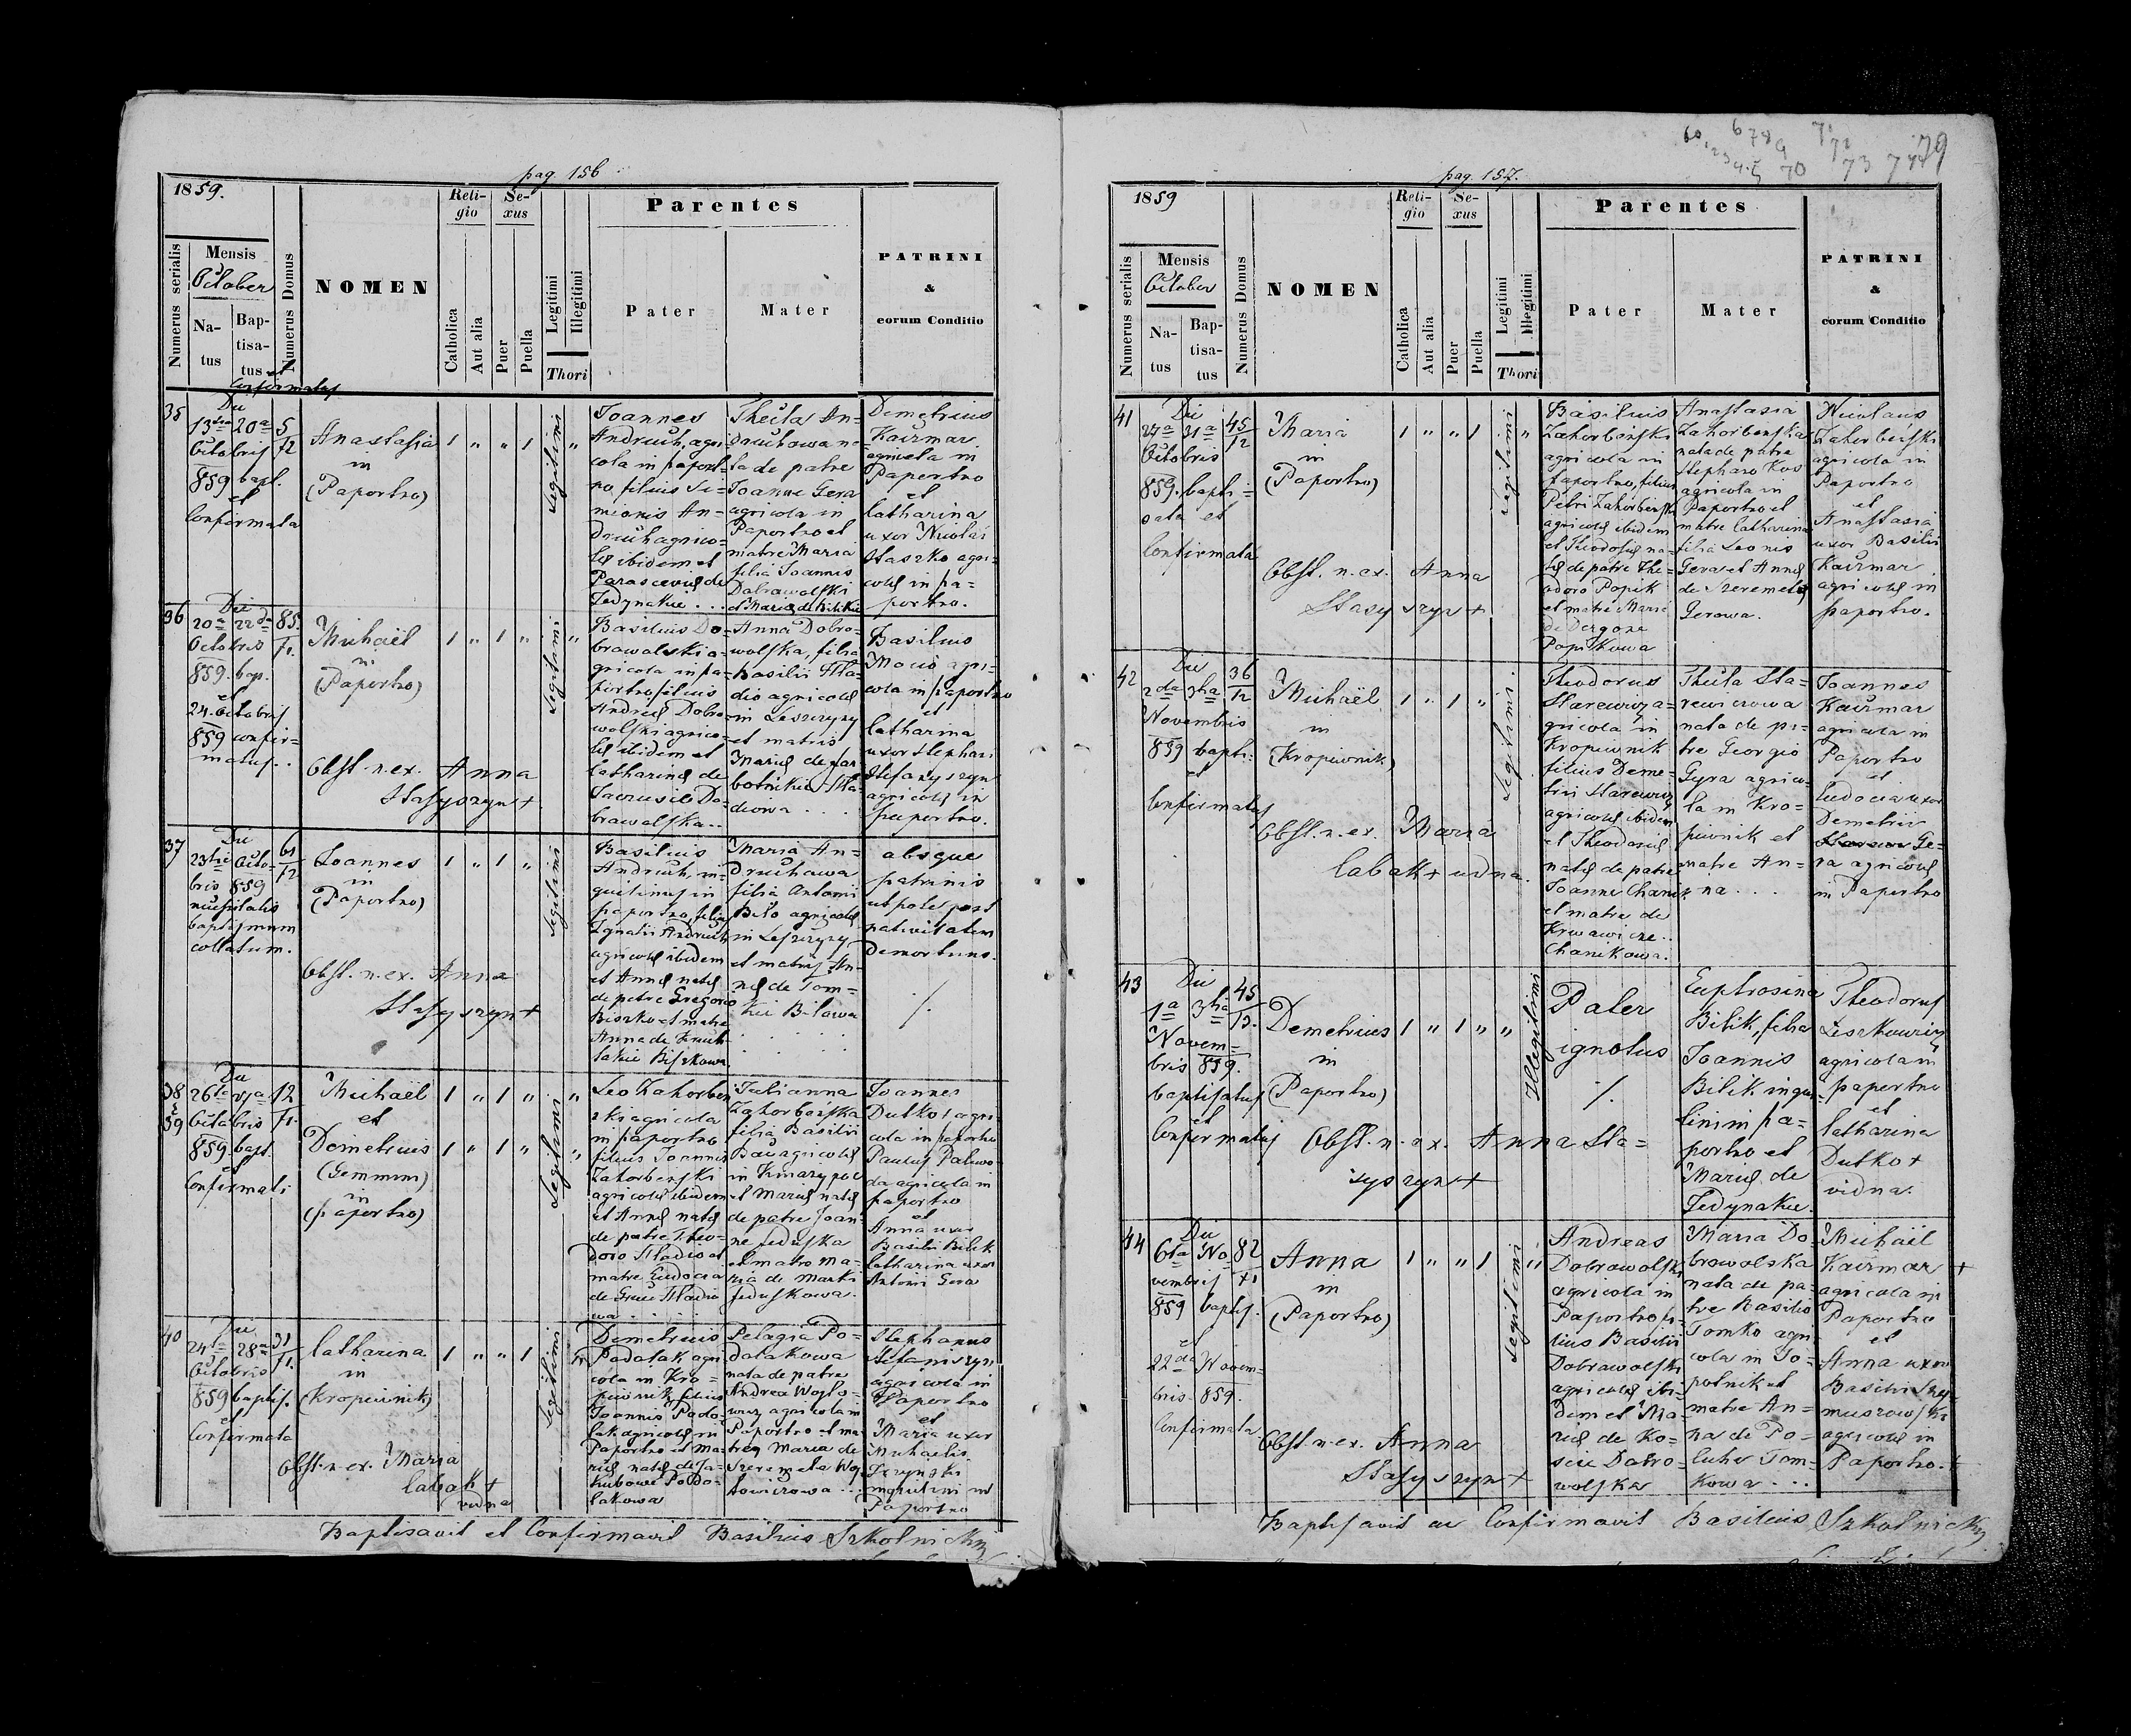 pag. 156
1859.
Numerus serialis
Mensis
October
Natus
Baptisatus et
Confirmatus
Numerus Domus
NOMEN
Religio
Catholica
Aut alia
Sexus
Puer
Puella
Legitimi
Illegitimi
Thori
Parentes
Pater
Mater
PATRINI
&
eorum Conditio
35
Die
13tia 20a 5
Octobris 72
859 bapt.
et
Confirmata
Anastasia
in
(Paportno)
1 " " 1
Legitimi
"
Joannes
Andruch, agri
cola in paport-
no filius Si-
meonis An-
druch agrico-
læ ibidem et
Parasceviæ de
Jedynakie ...
Thecla An-
druchowa na-
ta de patre
Joanne Gera
agricola in
Paportno et
matre Maria
filia Joannis
Dobrawolski
et Mariæ de Bilikie
Demetrius
Kaczmar
agricola in
Paportno
et
Catharina
uxor Nicolai
Staszko agri-
colæ in pa-
portno.
36
Die
20a 22da 85
Octobris 71.
859. bap.
et
24. Octobris
859 confir-
matus..
Michaël
in
(Paportno)
1 " 1 "
Legitimi
"
Obst. n. ex. Anna
Stasyszyn +
Basilius Do-
browolski a-
gricola in pa-
portno filius
Andreæ Dobro-
wolski agrico-
læ ibidem et
Catharinæ de
Do-
browolska..
Anna Dobro-
wolska, filia
Basilii Hla-
dio agricolæ
in Leszczyny
et matris
Mariæ de
Hla-
diowa ...
Basilius
agri-
cola in paportno
et
Catharina
uxor Stephani
Stefanyszyn
agricolæ in
paportno.
37
Die
23tia Octo- 61
bris 859 72
necessitatis
baptismum
collatum.
Joannes
in
(Paportno)
1 " 1 "
Legitimi
Obst. n. ex. Anna
Stasyszyn +
Basilius
Andruch, in-
quilinus in
paportno, filius
Ignatii Andruch
agricolæ ibidem
et Annæ natæ
de patre Gregorio
Biszko et matre
Anna de
Biszkowa.
Maria An-
druchowa
filia Antonii
Biło agricolæ
in Leszczyny
et matris An-
næ de Tom-
kie Bilowa
absque
patrinis
utpote post
nativitatem
demortuus.
./.
38
&
39
Die
26ta 12
Octobris 71.
859. bapt.
et
Confirmati
Michaël
et
Demetrius
(Gemini)
in
(paportno)
1 " 1 "
1 " 1 "
Legitimi
"
"
Leo Zahorben
ski agricola
in paportno
filius Joannis
Zahorbenski
agricolæ ibidem
et Annæ natæ
de patre Theo-
doro Hladio et
matre Eudocia
de Hladio
wa.
Julianna
Zahorbeńska
filia Basilii
agricolæ
in Kniazypol
et Mariæ natæ
de patre Joan-
ne Feduska
et matre Ma-
ria de
Feduskowa.
Joannes
Dutko + agri-
cola in paportno
Paulus
agricola in
paportno
et
Anna uxor
Basilii Bilik
Catharina uxor
Antonii Gera
40
Die
24ta 28a 31
Octobris 71.
859 baptis.
et
Confirmata
Catharina
in
(Kropiwnik)
1 " " 1
Legitimi
Obst. n. ex. Maria
Cabak +
vidua
Demetrius
Podolak agri
cola in Kro-
piwnik, filius
Joannis Podo-
lak agricolæ in
Paportno et Ma-
riæ natæ de Ja-
kubowe Podo-
lakowa
Pelagia Po-
dolakowa
nata de patre
Andrea Wojto-
wicz agricola in
Paportno et ma-
tre Maria de
Szeremeta Woj
towiczowa ...
Stephanus
Stefaniszyn
agricola in
Paportno
et
Maria uxor
Michaelis
inquilini in
Paportno
Baptisavit et Confirmavit Basilius Szkolnicky
pag. 157.
1859
Numerus serialis
Mensis
October
Natus
Baptisatus
Numerus Domus
NOMEN
Religio
Catholica
Aut alia
Sexus
Puer
Puella
Legitimi
Illegitimi
Thori
Parentes
Pater
Mater
PATRINI
&
eorum Conditio
41
Die
27a 31a 45
Octobris 72
859. bapti-
sata et
Confirmata
Maria
in
(Paportno)
1 " " 1
Legitimi
"
Obst. n. ex. Anna
Stasyszyn +
Basilius
Zahorbeński
agricola in
paportno, filius
Petri Zahorbeński
agricolæ ibidem
et Theodosiæ na-
tæ de patre The-
odoro Popik
et matre Maria
de Dergone
Popikowa
Anastasia
Zahorbeńska
nata de patre
Stephano Kos
agricola in
Paportno et
matre Catharina
filia Leonis
Gera et Annæ
de Szeremetæ
Gerowa.
Nicolaus
Zahorbeński
agricola in
Paportno
et
Anastasia
uxor Basilii
Kaczmar
agricolæ in
paportno.
42
Die
2da 3tia 36
Novembris 72
859 bapti-
et
Confirmatus
Michaël
in
(Kropiwnik)
1 " 1 "
Legitimi
Obst. n. ex. Maria
Cabak + vidua.
Theodorus
Starewicz a-
gricola in
Kropiwnik
filius Deme-
trii Starewicz
agricolæ ibidem
et Theodoriæ
natæ de patre
Joanne Chanik
et matre de
Krwawicze..
Chanikowa.
Thecla Sta-
rewiczowa
nata de pa-
tre Georgio
Gyra agrico-
la in Kro-
piwnik et
matre An-
na ....
Joannes
Kaczmar
agricola in
Paportno
et
Eudocia uxor
Demetrii
Ge-
ra agricolæ
in Paportno
43
Die
1a 3tia 45
Novem- 73.
bris 859.
baptisatus
et
Confirmatus
Demetrius
in
(Paportno)
1 " 1 " "
Illegitimi
Obst. n. ex. Anna Sta-
syszyn +
Pater
ignotus
./.
Euphrosina
Bilik, filia
Joannis
Bilik inqui-
lini in pa-
portno et
Mariæ de
Jedynakie.
Theodorus
Leszkowicz
agricola in
paportno
et
Catharina
Dutko +
vidua.
44
Die
6ta No- 82
vembris 71
859 baptis.
et
22da Novem-
bris 859.
Confirmata
Anna
in
(Paportno)
1 " " 1
Legitimi
"
Obst. n. ex. Anna
Stasyszyn +
Andreas
Dobrowolski
agricola in
Paportno fi-
lius Basilii
Dobrowolski
agricolæ ibi-
dem et Ma-
riæ de Ko-
scie Dobro-
wolska
Maria Do-
browolska
nata de pa-
tre Basilio
Tomko agri
cola in To-
polnik et
matre An-
na de Po-
luho Tom-
kowa ...
Michaël
Kaczmar +
agricola in
Paportno
et
Anna uxor
Basilii
agricolæ in
Paportno. +
Baptisavit ac Confirmavit Basilius Szkolnicky